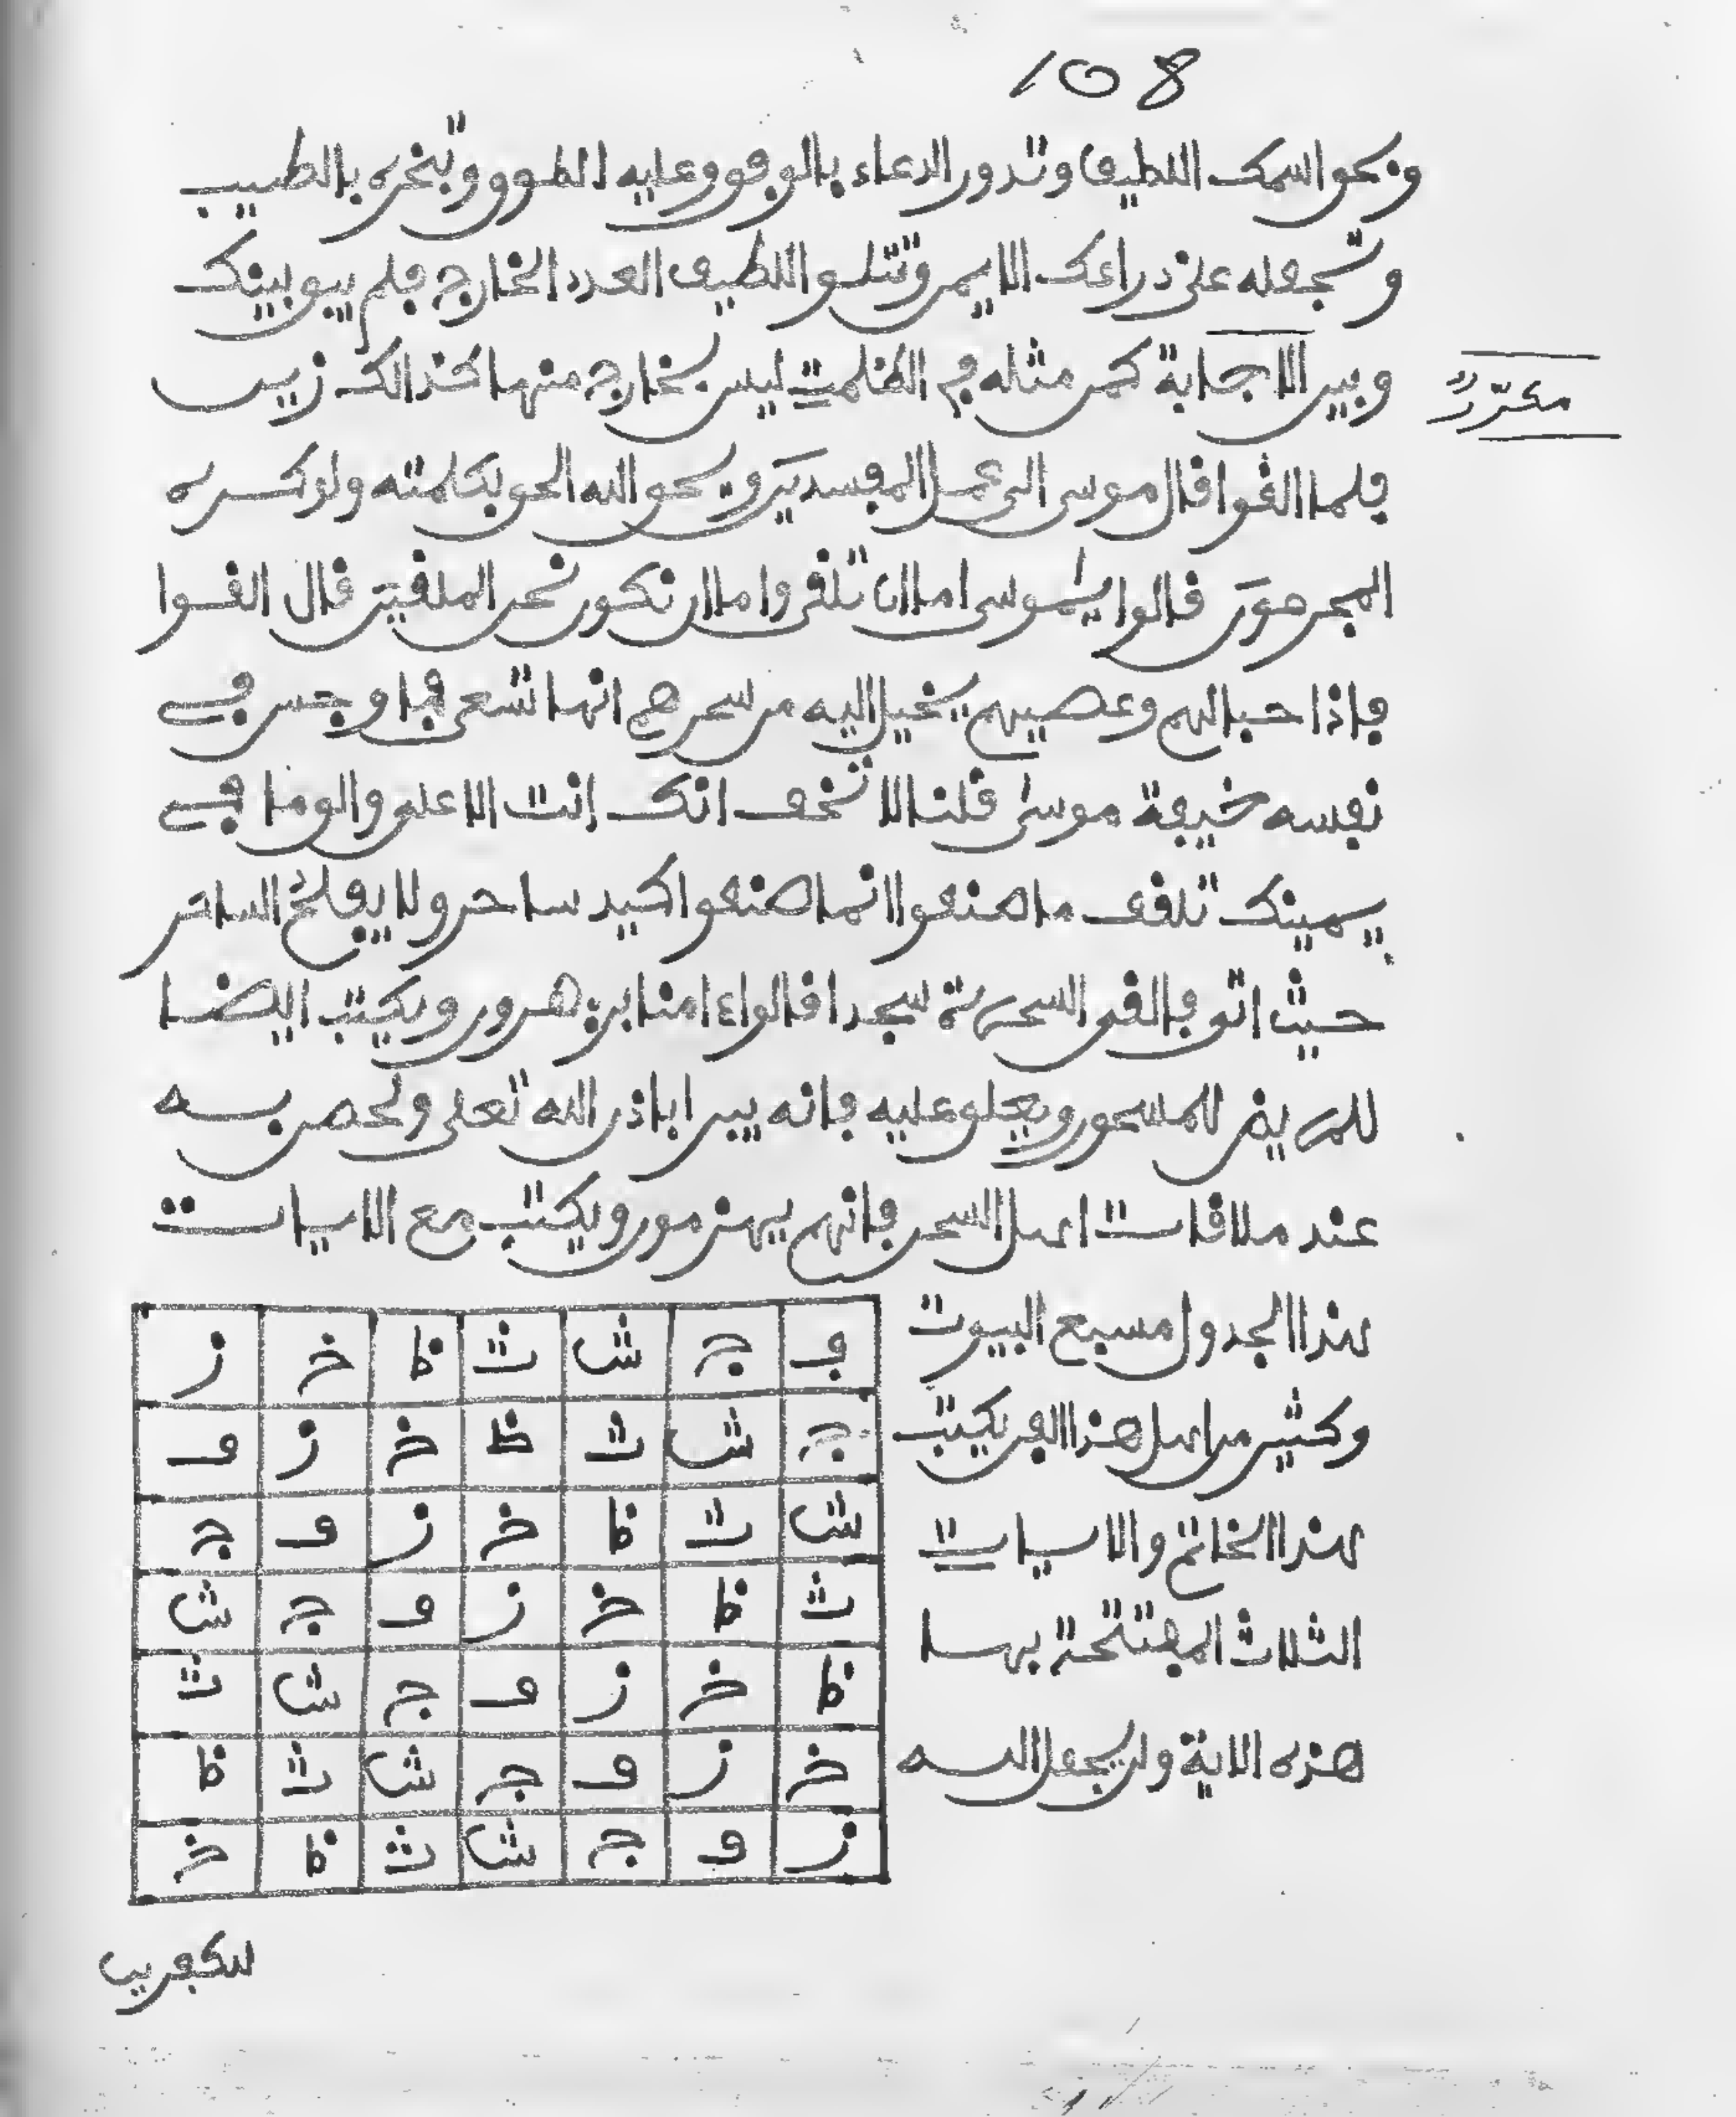 108
وبحق اسمك اللطيف وتدور الدعاء بالوفق وعليه الطوق وتبخره بالطيب
وتجعله على ذراعك الايمن وتتلو اللطيف العدد الخارج فلم يبق بينك
وبين الاجابة كمن مثله في الظلمت ليس بخارج منها كذالك زين
مكرر
فلما القوا قال موسى الى عمل المفسدين ويحق الله الحق بكلمته ولو كره
المجرمون قالوا يموسى اما ان تلقى واما ان نكون نحن الملقين قال القوا
فإذا حبالهم وعصيهم يخيل اليه من سحرهم انها تسعى فاوجس في
نفسه خيفة موسى قلنا لا تخف انك انت الاعلى والق ما في
يمينك تلقف ما صنعوا انما صنعوا كيد ساحر ولا يفلح الساحر
حيث اتى فالقى السحرة سجدا قالوا ءامنا برب هرون ويكتب ايضا
للمريض للمسحور ويعلق عليه فانه يبرا باذن الله تعلى ولحصن به
عند ملاقات اهل السحر فانهم يهزمون ويكتب مع الايات
هذا الجدول مسبع البيوت
وكثير من اهل هذا الفن يكتب
هذا الخاتم والايات
الثلاث المفتتحة بها
هذه الاية ولن يجعل الله
ف ج ش ث ظ خ ز
ج ش ث ظ خ ز ف
ش ث ظ خ ز ف ج
ث ظ خ ز ف ج ش
ظ خ ز ف ج ش ث
خ ز ف ج ش ث ظ
ز ف ج ش ث ظ خ
للكفرين